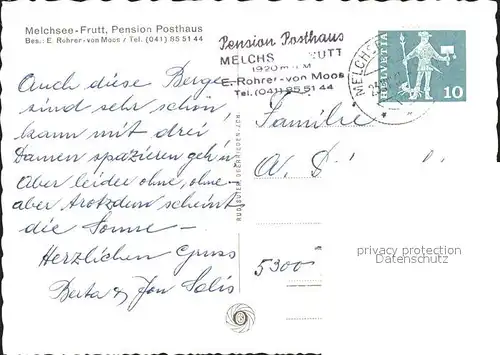 Melchsee-Frutt, Pension Posthaus
Bes.: E. Rohrer-von Moos / Tel. (041) 85 51 44
Pension Posthaus
MELCHS UTT
1920 m ü M
E. Rohrer-von Moos
Tel. (041) 85 51 44
MELCHS
HELVETIA
10
Auch diese Berge
sind sehr schön
kann mit drei
Damen spazieren geh'n
Aber leider ohne, ohne
aber trotzdem scheint
die Sonne –
Herzlichen Gruss
Berta & Jon
Familie
5300
privacy protection
Datenschutz